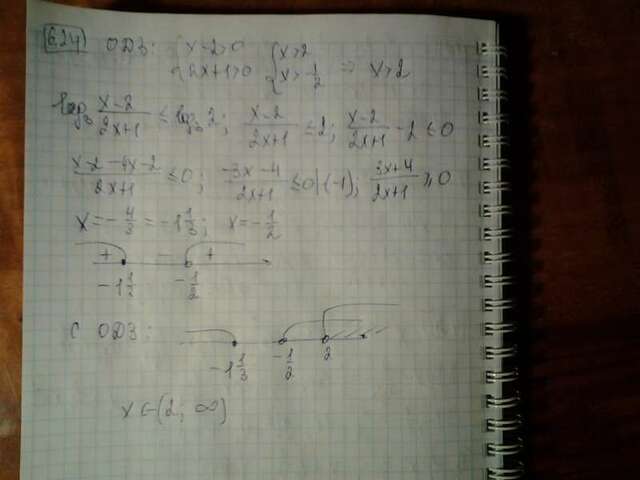 6.24) ОДЗ: { x-2>0 { x>2 ⇒ x>2
{ 2x+1>0 { x>-1/2
log₃ (x-2)/(2x+1) ≤ log₃ 2; (x-2)/(2x+1) ≤ 2; (x-2)/(2x+1) - 2 ≤ 0
(x-2-4x-2)/(2x+1) ≤ 0; (-3x-4)/(2x+1) ≤ 0 |·(-1); (3x+4)/(2x+1) ≥ 0
x = -4/3 = -1 1/3; x = -1/2
+ - +
-1 1/3 -1/2
С ОДЗ:
-1 1/3 -1/2 2
x ∈ (2; ∞)